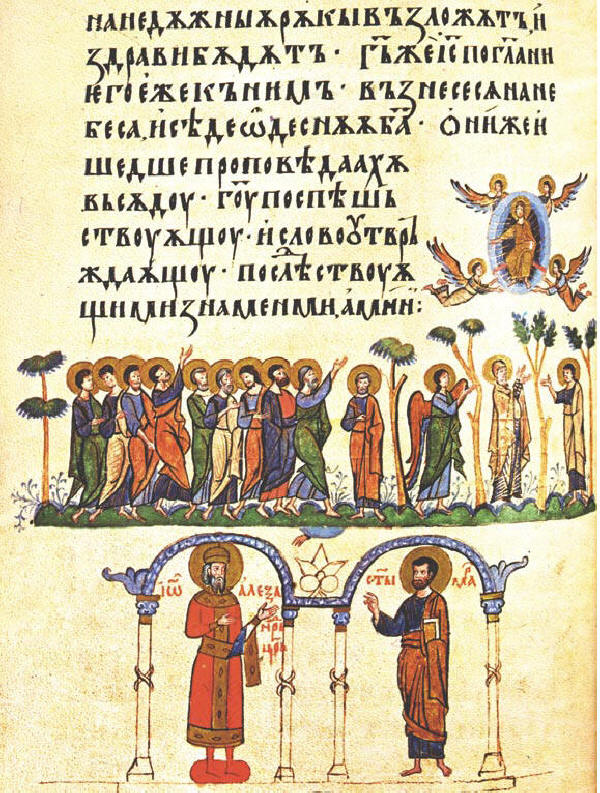 нанедѫжныѧрѫкывъзложѧтъ,и
здравибѫдѫтъ· г҃ьжеі҃споглани
ꙗгоежекънимъ· възнесесѧнане
беса,исѣдеѡдеснѫѧба҃· онижеи
шедшепроповѣдаахѫ
вьсѫдоу· гоу҃поспѣшь
ствоуѫщоу· исловоутврь
ждаѫщоу· послѣⷣствоуѫ
щимизнаменми,аминь:
іѡ алеѯа
црь
ст҃ы мар